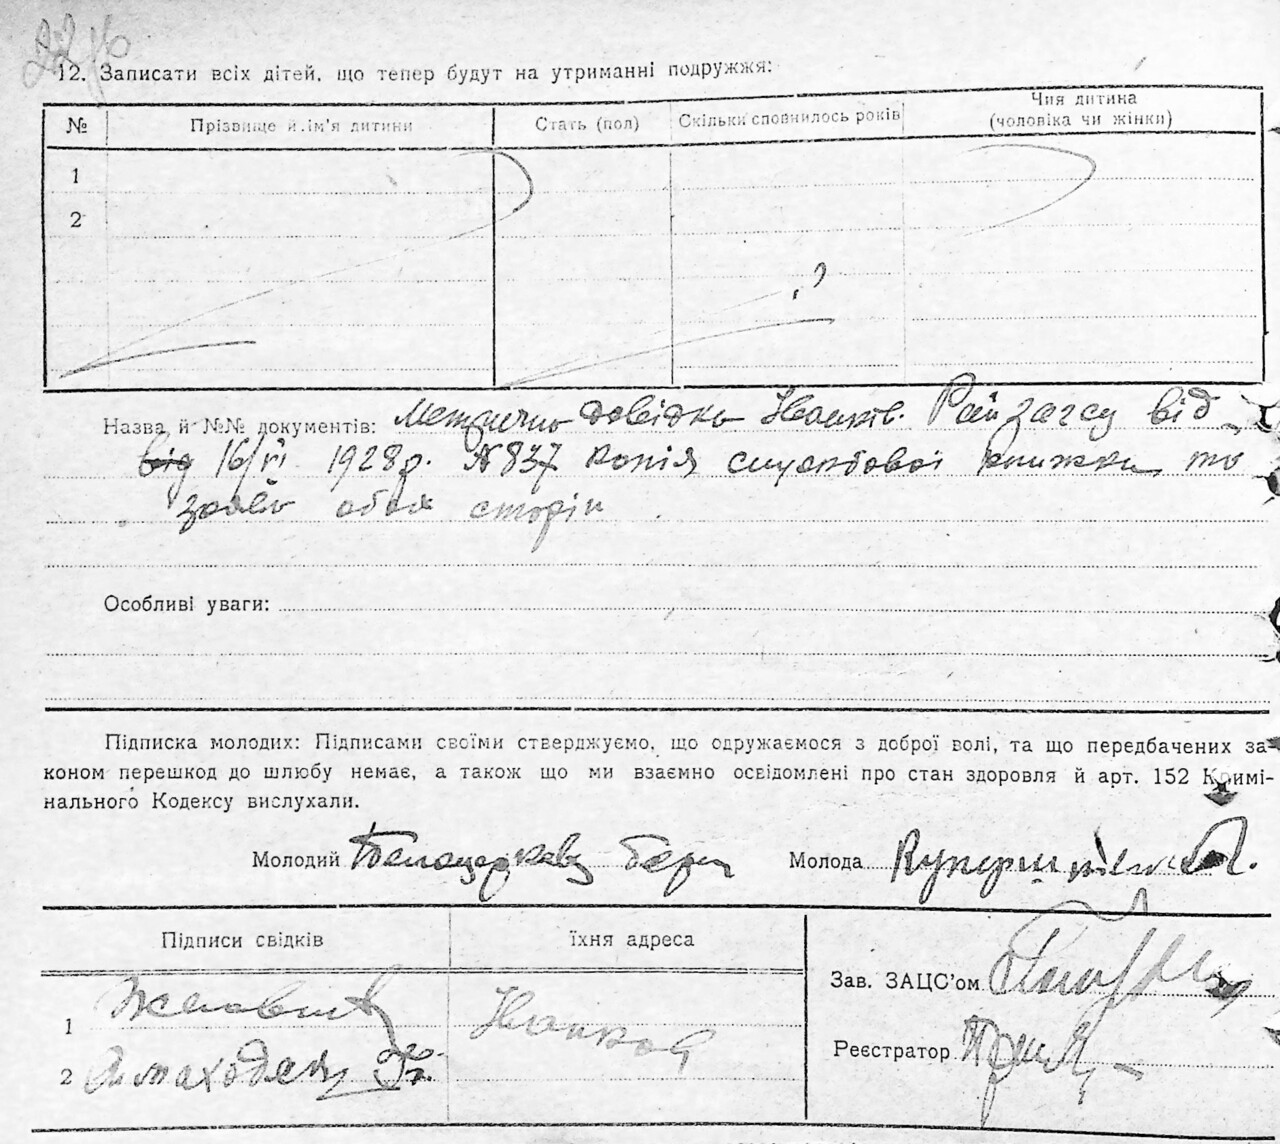 12. Записати всіх дітей, що тепер будут на утриманні подружжя:
№ Прізвище й ім'я дитини Стать (пол) Скільки сповнилось років Чия дитина (чоловіка чи жінки)
1
2
Назва й №№ документів: довідка Іванків. Рай загсу від
від 16/VI 1928р. №837 копія службової книжки та
заява обох сторін
Особливі уваги:
Підписка молодих: Підписами своїми стверджуємо, що одружаємося з доброї волі, та що передбачених за-
коном перешкод до шлюбу немає, а також що ми взаємно освідомлені про стан здоровля й арт. 152 Кримі-
нального Кодексу вислухали.
Молодий Молода
Підписи свідків їхня адреса
Зав. ЗАЦС'ом
1 Іванков
Реєстратор
2